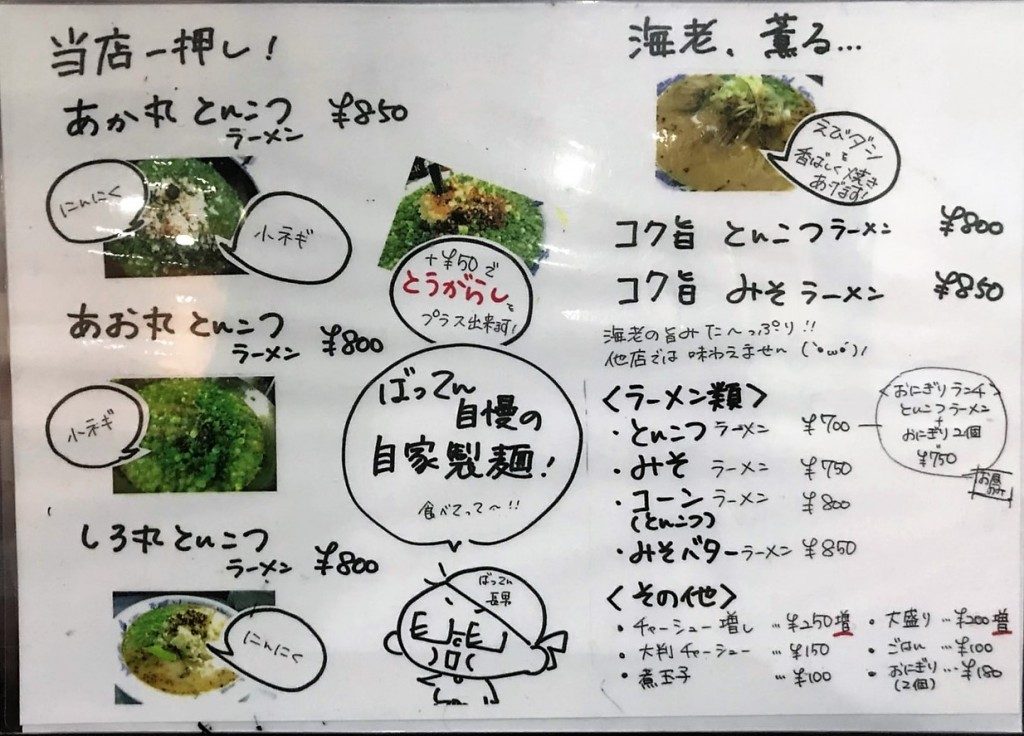 当店一押し!
あか丸とんこつ
ラーメン ¥850
にんにく
小ネギ
+¥50で
とうがらしを
プラス出来ます!
あお丸とんこつ
ラーメン ¥800
小ネギ
ばってん
自慢の
自家製麺!
食べてって〜!!
しろ丸とんこつ
ラーメン ¥800
にんにく
ばってん
長男
海老、薫る...
えびダシ
を
香ばしく焼き
あげます!
コク旨 とんこつラーメン ¥800
コク旨 みそラーメン ¥850
海老の旨みた〜っぷり!!
他店では味わえません(`・ω・´)!
<ラーメン類>
・とんこつラーメン ¥700
・みそラーメン ¥750
・コーンラーメン ¥800
(とんこつ)
・みそバターラーメン ¥850
おにぎりランチ
とんこつラーメン
+
おにぎり2個
¥750
お昼
のみ
<その他>
・チャーシュー増し …¥250増
・大判チャーシュー …¥150
・煮玉子 …¥100
・大盛り …¥200増
・ごはん …¥100
・おにぎり …¥180
(2個)